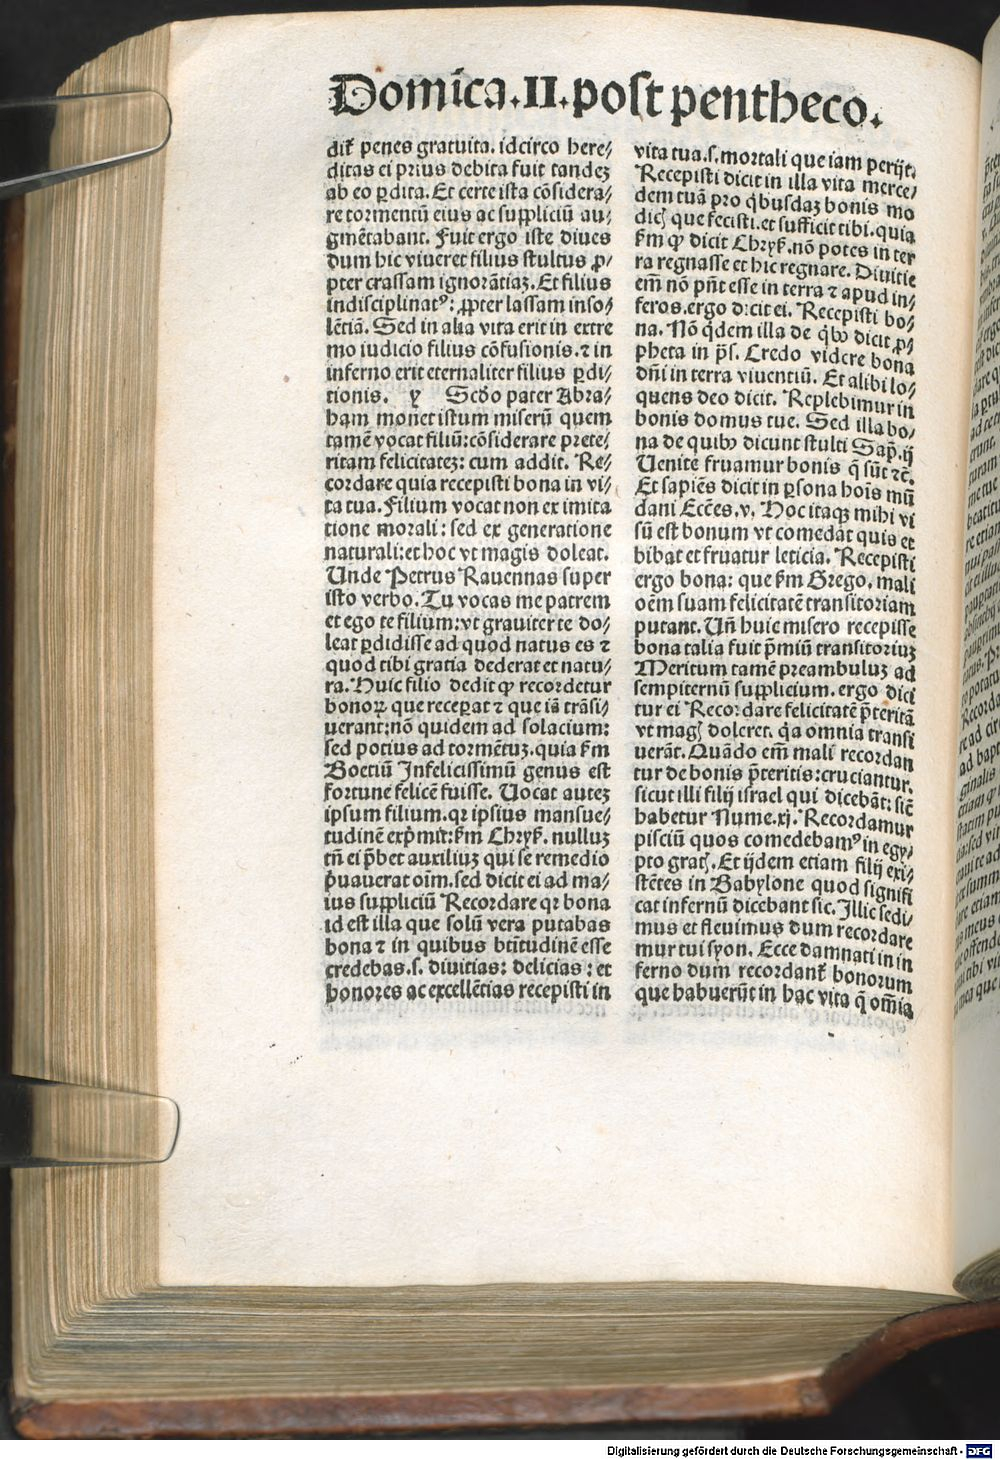 Domica.II.post pentheco.
dit᷑ penes gratuita. idcirco here⸗
ditas ei prius debita fuit tandeꝫ
ab eo ꝑdita. Et certe ista cōsidera⸗
re tormentū eius ac suppliciū au⸗
gmētabant. Fuit ergo iste diues
dum hic viueret filius stultus ꝓ⸗
pter crassam ignorātiaꝫ. Et filius
indisciplinatꝰ: ꝓpter lassam inso⸗
lētiā. Sed in alia vita erit in extre
mo iudicio filius cōfusionis. ⁊ in
inferno erit eternaliter filius ꝑdi⸗
tionis. y Scďo pater Abra⸗
ham monet istum miserū quem
tamē vocat filiū: cōsiderare prete⸗
ritam felicitateꝫ: cum addit. Re⸗
cordare quia recepisti bona in vi⸗
ta tua. Filium vocat non ex imita
tione morali: sed ex generatione
naturali: et hoc vt magis doleat.
Unde Petrus Rauennas super
isto verbo. Tu vocas me patrem
et ego te filium: vt grauiter te do⸗
leat ꝑdidisse ad quod natus es ⁊
quod tibi gratia dederat et natu⸗
ra. Huic filio dedit ꝙ recordetur
bonoꝝ que receꝑat ⁊ que iā trāsi⸗
uerant: nō quidem ad solacium:
sed potius ad tormētuꝫ. quia ẜm
Boetiū Infelicissimū genus est
fortune felicē fuisse. Uocat auteꝫ
ipsum filium. qꝛ ipsius mansue⸗
tudinē exp̄mit: ẜm Chryẜ. nulluꝫ
tn̄ ei p̄bet auxiliuꝫ qui se remedio
p̄uauerat oīm. sed dicit ei ad ma⸗
ius suppliciū Recordare qꝛ bona
id est illa que solū vera putabas
bona ⁊ in quibus bt̄itudinē esse
credebas. s. diuitias: delicias: et
honores ac excellētias recepisti in
vita tua. s. mortali que iam perijt.
Recepisti dicit in illa vita merce⸗
dem tuā pro q̇busdaꝫ bonis mo
dicꝭ que fecisti. et sufficit tibi. quia
ẜm ꝙ dicit Chryẜ. nō potes in ter
ra regnasse et hic regnare. Diuitie
em̄ nō pn̄t esse in terra ⁊ apud in⸗
feros. ergo dicit ei. Recepisti bo⸗
na. Nō q̇dem illa de q̇bꝰ dicit ꝓ⸗
pheta in p̄s. Credo videre bona
dn̄i in terra viuentiū. Et alibi lo⸗
quens deo dicit. Replebimur in
bonis domus tue. Sed illa bo⸗
na de quibꝰ dicunt stulti Sap̄. ij
Uenite fruamur bonis q̄ sūt ⁊c̄.
Et sapiēs dicit in ꝑsona hoīs mū
dani Ecc̄es. v. Hoc itaqꝫ mihi vi
sū est bonum vt comedat quis et
bibat et fruatur leticia. Recepisti
ergo bona: que ẜm Grego. mali
oēm suam felicitatē transitoriam
putant. Un̄ huic misero recepisse
bona talia fuit p̄miū transitoriuꝫ
Meritum tamē preambuluꝫ ad
sempiternū supplicium. ergo dici
tur ei Recordare felicitatē p̄teritā
vt magꝭ doleret. q̇a omnia transi
uerāt. Quādo em̄ mali recordan
tur de bonis p̄teritis: cruciantur.
sicut illi filij israel qui dicebāt: sic̄
habetur Nume. xj. Recordamur
pisciū quos comedebamꝰ in egy⸗
pto gratꝭ. Et ijdem etiam filij exi⸗
stētes in Babylone quod signifi
cat infernū dicebant sic. Illic sedi⸗
mus et fleuimus dum recordare
mur tui syon. Ecce damnati in in
ferno dum recordant᷑ bonorum
que habuerūt in hac vita q̄ om̄ia
Digitalisierung gefördert durch die Deutsche Forschungsgemeinschaft - DFG